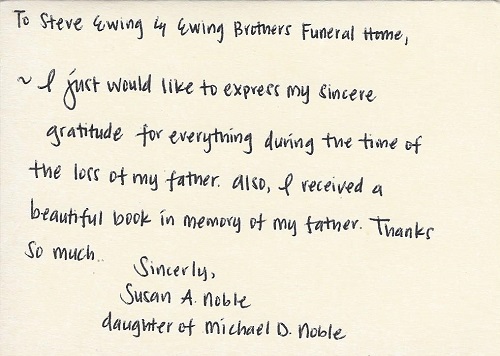 To Steve Ewing & Ewing Brothers Funeral Home,
~ I just would like to express my sincere
gratitude for everything during the time of
the loss of my father. Also, I received a
beautiful book in memory of my father. Thanks
so much..
Sincerly,
Susan A. Noble
daughter of Michael D. Noble